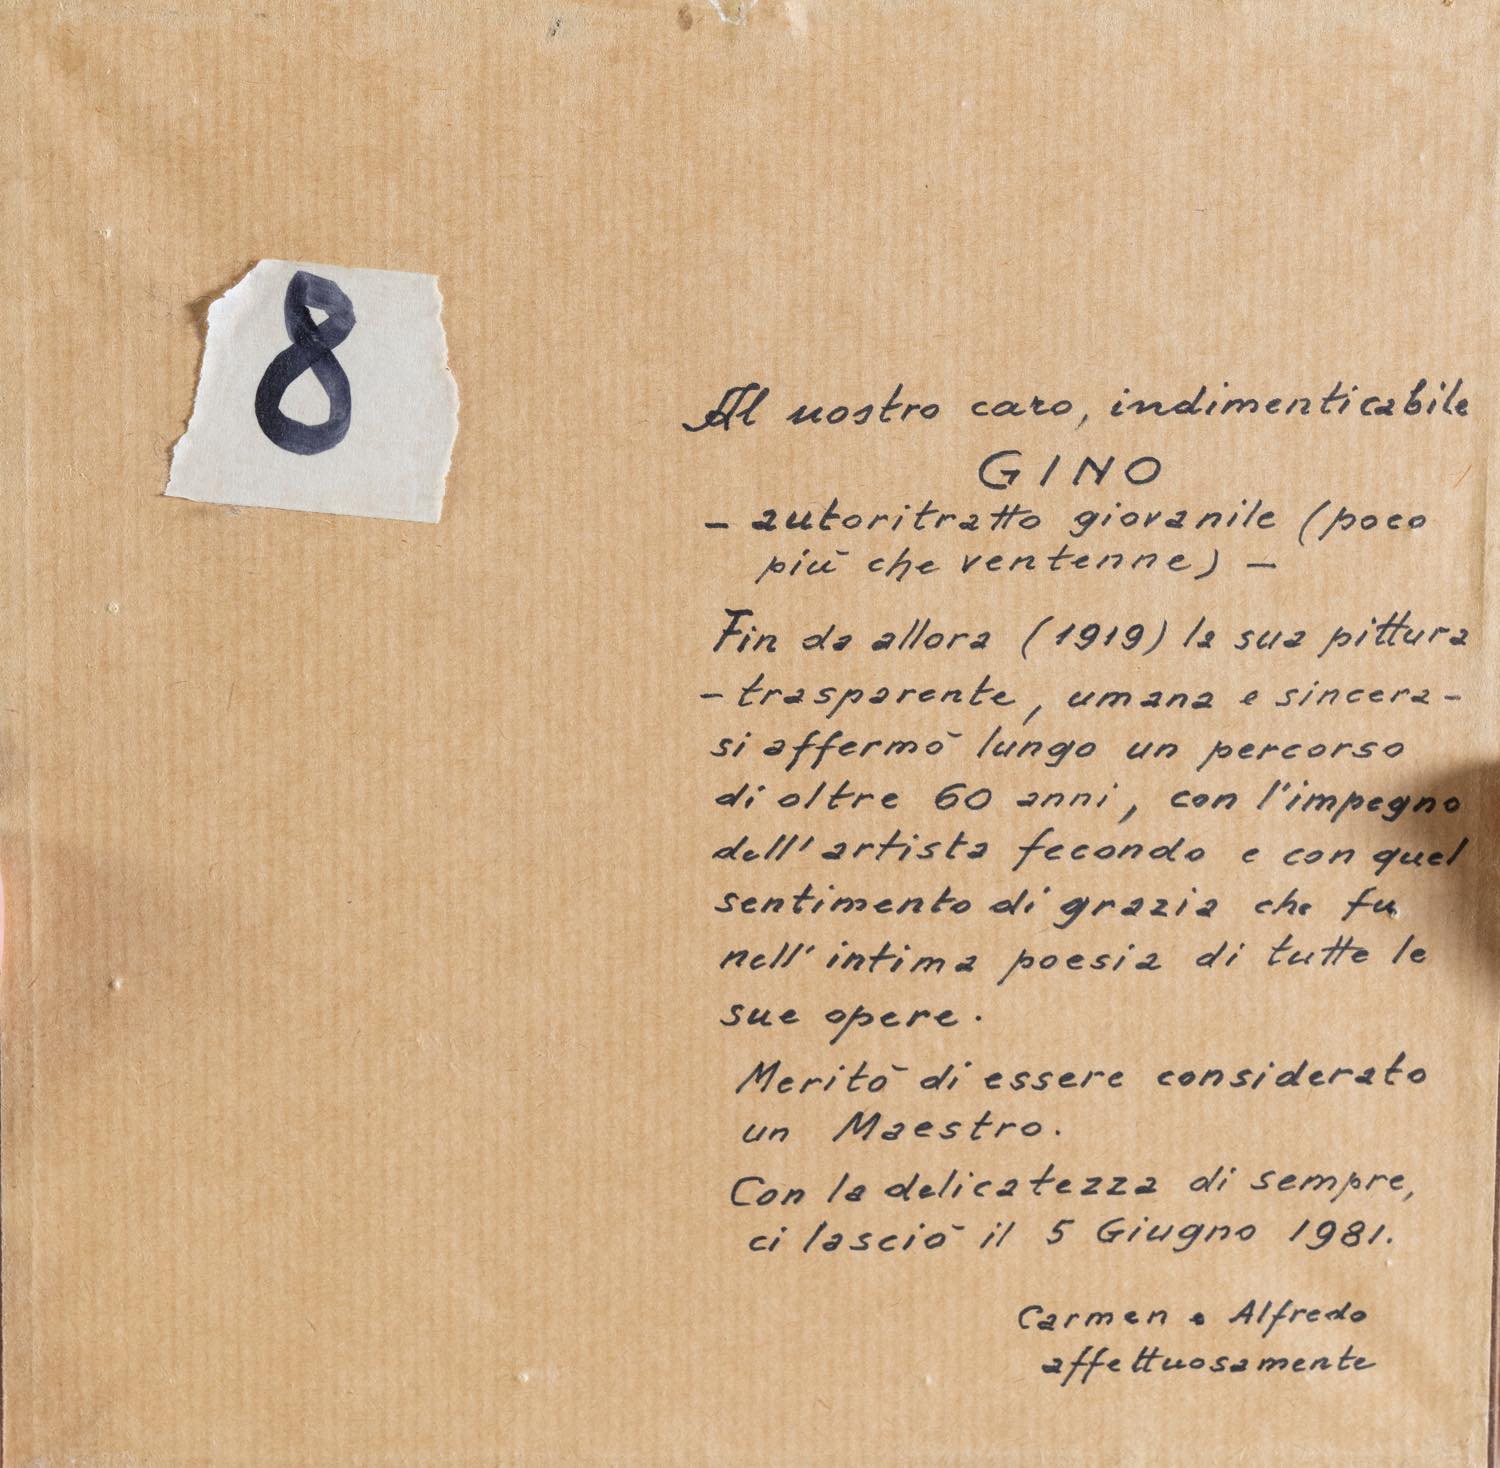 8
Al nostro caro, indimenticabile
GINO
- autoritratto giovanile (poco
più che ventenne) -
Fin da allora (1919) la sua pittura
- trasparente, umana e sincera -
si affermò lungo un percorso
di oltre 60 anni, con l'impegno
dell'artista fecondo e con quel
sentimento di grazia che fu
nell'intima poesia di tutte le
sue opere.
Meritò di essere considerato
un Maestro.
Con la delicatezza di sempre,
ci lasciò il 5 Giugno 1981.
Carmen e Alfredo
affettuosamente